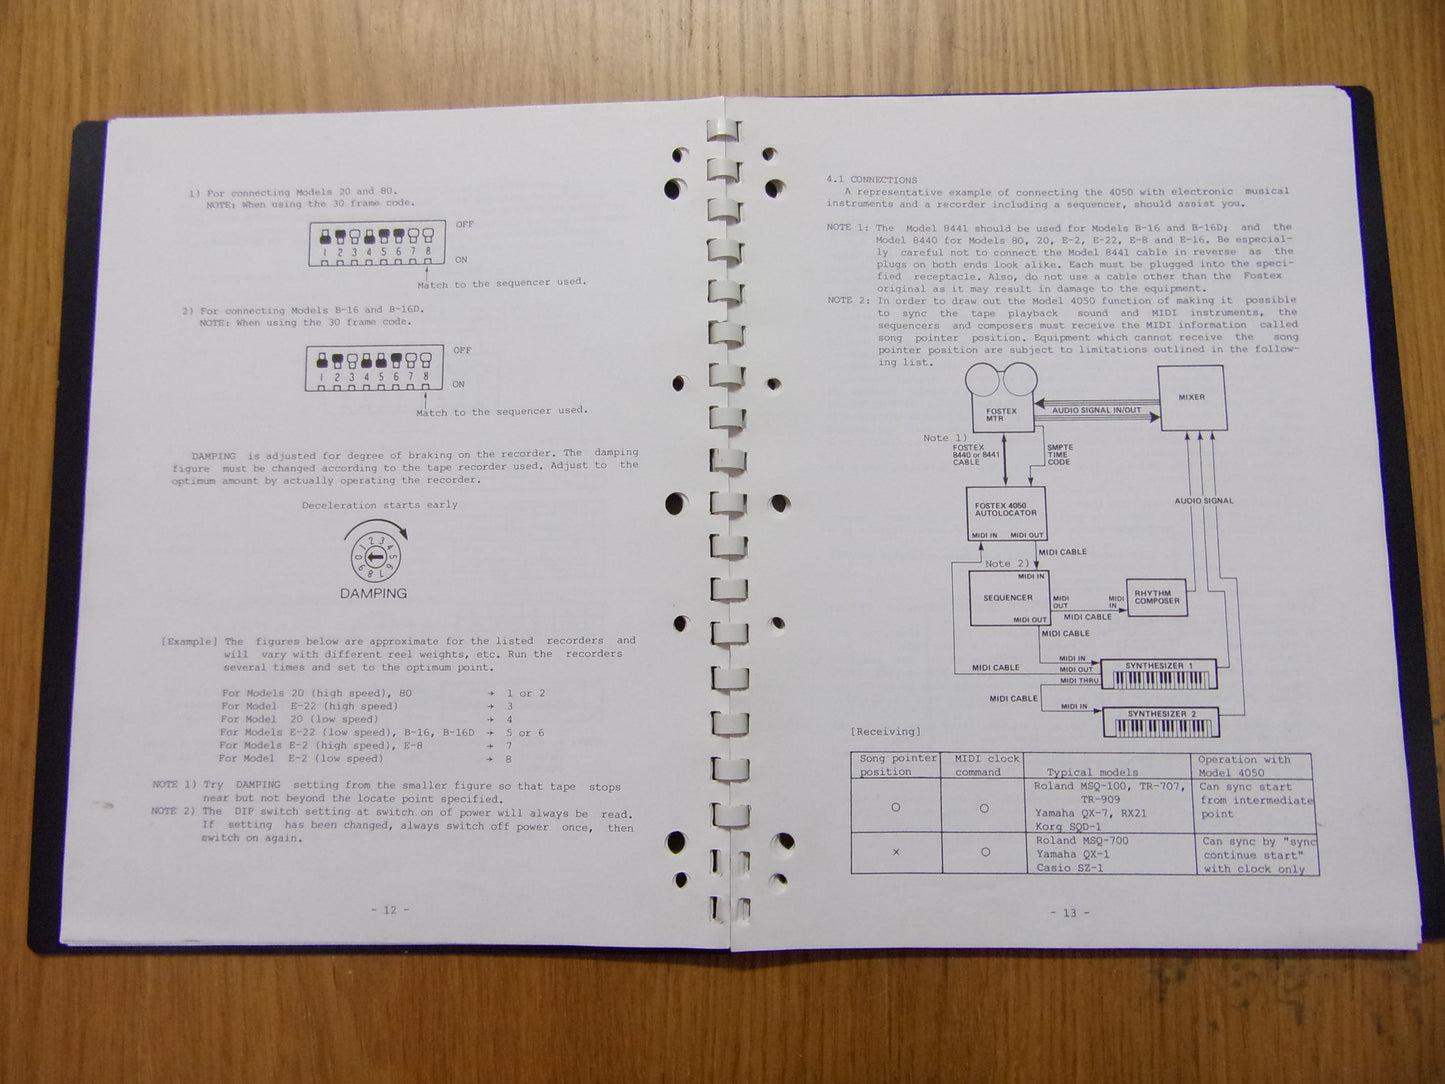 1) For connecting Models 20 and 80.
NOTE: When using the 30 frame code.
OFF
1 2 3 4 5 6 7 8
ON
Match to the sequencer used.
2) For connecting Models B-16 and B-16D.
NOTE: When using the 30 frame code.
OFF
1 2 3 4 5 6 7 8
ON
Match to the sequencer used.
DAMPING is adjusted for degree of braking on the recorder. The damping
figure must be changed according to the tape recorder used. Adjust to the
optimum amount by actually operating the recorder.
Deceleration starts early
0 1 2 3 4 5 6 7 8 9
DAMPING
[Example] The figures below are approximate for the listed recorders and
will vary with different reel weights, etc. Run the recorders
several times and set to the optimum point.
For Models 20 (high speed), 80 → 1 or 2
For Model E-22 (high speed) → 3
For Model 20 (low speed) → 4
For Models E-22 (low speed), B-16, B-16D → 5 or 6
For Models E-2 (high speed), E-8 → 7
For Model E-2 (low speed) → 8
NOTE 1) Try DAMPING setting from the smaller figure so that tape stops
near but not beyond the locate point specified.
NOTE 2) The DIP switch setting at switch on of power will always be read.
If setting has been changed, always switch off power once, then
switch on again.
- 12 -
4.1 CONNECTIONS
A representative example of connecting the 4050 with electronic musical
instruments and a recorder including a sequencer, should assist you.
NOTE 1: The Model 8441 should be used for Models B-16 and B-16D; and the
Model 8440 for Models 80, 20, E-2, E-22, E-8 and E-16. Be especial-
ly careful not to connect the Model 8441 cable in reverse as the
plugs on both ends look alike. Each must be plugged into the speci-
fied receptacle. Also, do not use a cable other than the Fostex
original as it may result in damage to the equipment.
NOTE 2: In order to draw out the Model 4050 function of making it possible
to sync the tape playback sound and MIDI instruments, the
sequencers and composers must receive the MIDI information called
song pointer position. Equipment which cannot receive the song
pointer position are subject to limitations outlined in the follow-
ing list.
FOSTEX
MTR
AUDIO SIGNAL IN/OUT
MIXER
Note 1)
FOSTEX
8440 or 8441
CABLE
SMPTE
TIME
CODE
AUDIO SIGNAL
FOSTEX 4050
AUTOLOCATOR
MIDI IN MIDI OUT
MIDI CABLE
Note 2)
MIDI IN
SEQUENCER
MIDI
OUT
MIDI
IN
MIDI CABLE
RHYTHM
COMPOSER
MIDI OUT
MIDI CABLE
MIDI CABLE
MIDI IN
MIDI OUT
MIDI THRU
SYNTHESIZER 1
MIDI CABLE
MIDI IN
SYNTHESIZER 2
[Receiving]
Song pointer position
MIDI clock command
Typical models
Operation with Model 4050
○
○
Roland MSQ-100, TR-707,
TR-909
Yamaha QX-7, RX21
Korg SQD-1
Can sync start
from intermediate
point
×
○
Roland MSQ-700
Yamaha QX-1
Casio SZ-1
Can sync by "sync
continue start"
with clock only
- 13 -